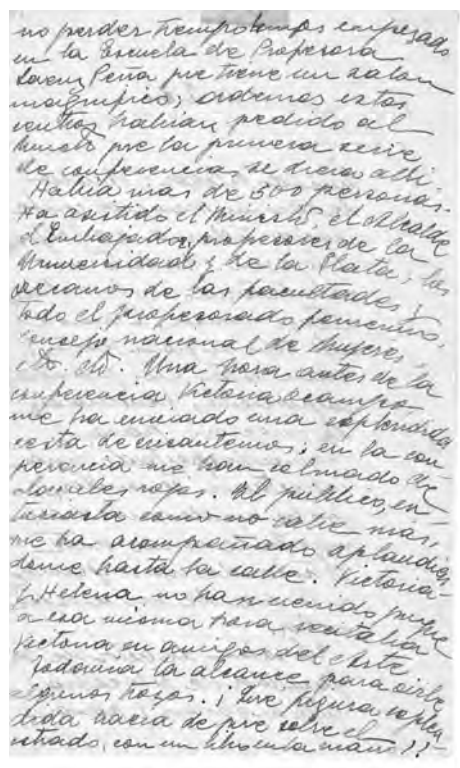 no perder tiempo hemos empezado
en la Escuela de Profesora
Saenz Peña que tiene un salon
magnifico; ademas estos
centros habian pedido al
Minist.º que la primera serie
de conferencias se diera alli.
Habia mas de 500 personas.
Ha asistido el Ministro, el Alcalde
el Embajador, profesores de la
Universidad y de la Plata; los
decanos de las facultades y
todo el profesorado femenino,
Consejo nacional de Mujeres,
etc. etc. Una hora antes de la
conferencia Victoria Ocampo
me ha enviado una esplendida
cesta de crisantemos; en la con
ferencia me han colmado de
claveles rojos. El publico, en
tusiasta como no cabe mas,
me ha acompañado aplaudien
dome hasta la calle. Victoria
y Helena no han venido porque
a esa misma hora recitaba
Victoria en amigos del Arte
Todavia la alcance para oirle
algunos trozos. ¡Que figura esplen
dida hacia de pie sobre el
estrado, con un libro en la mano!!